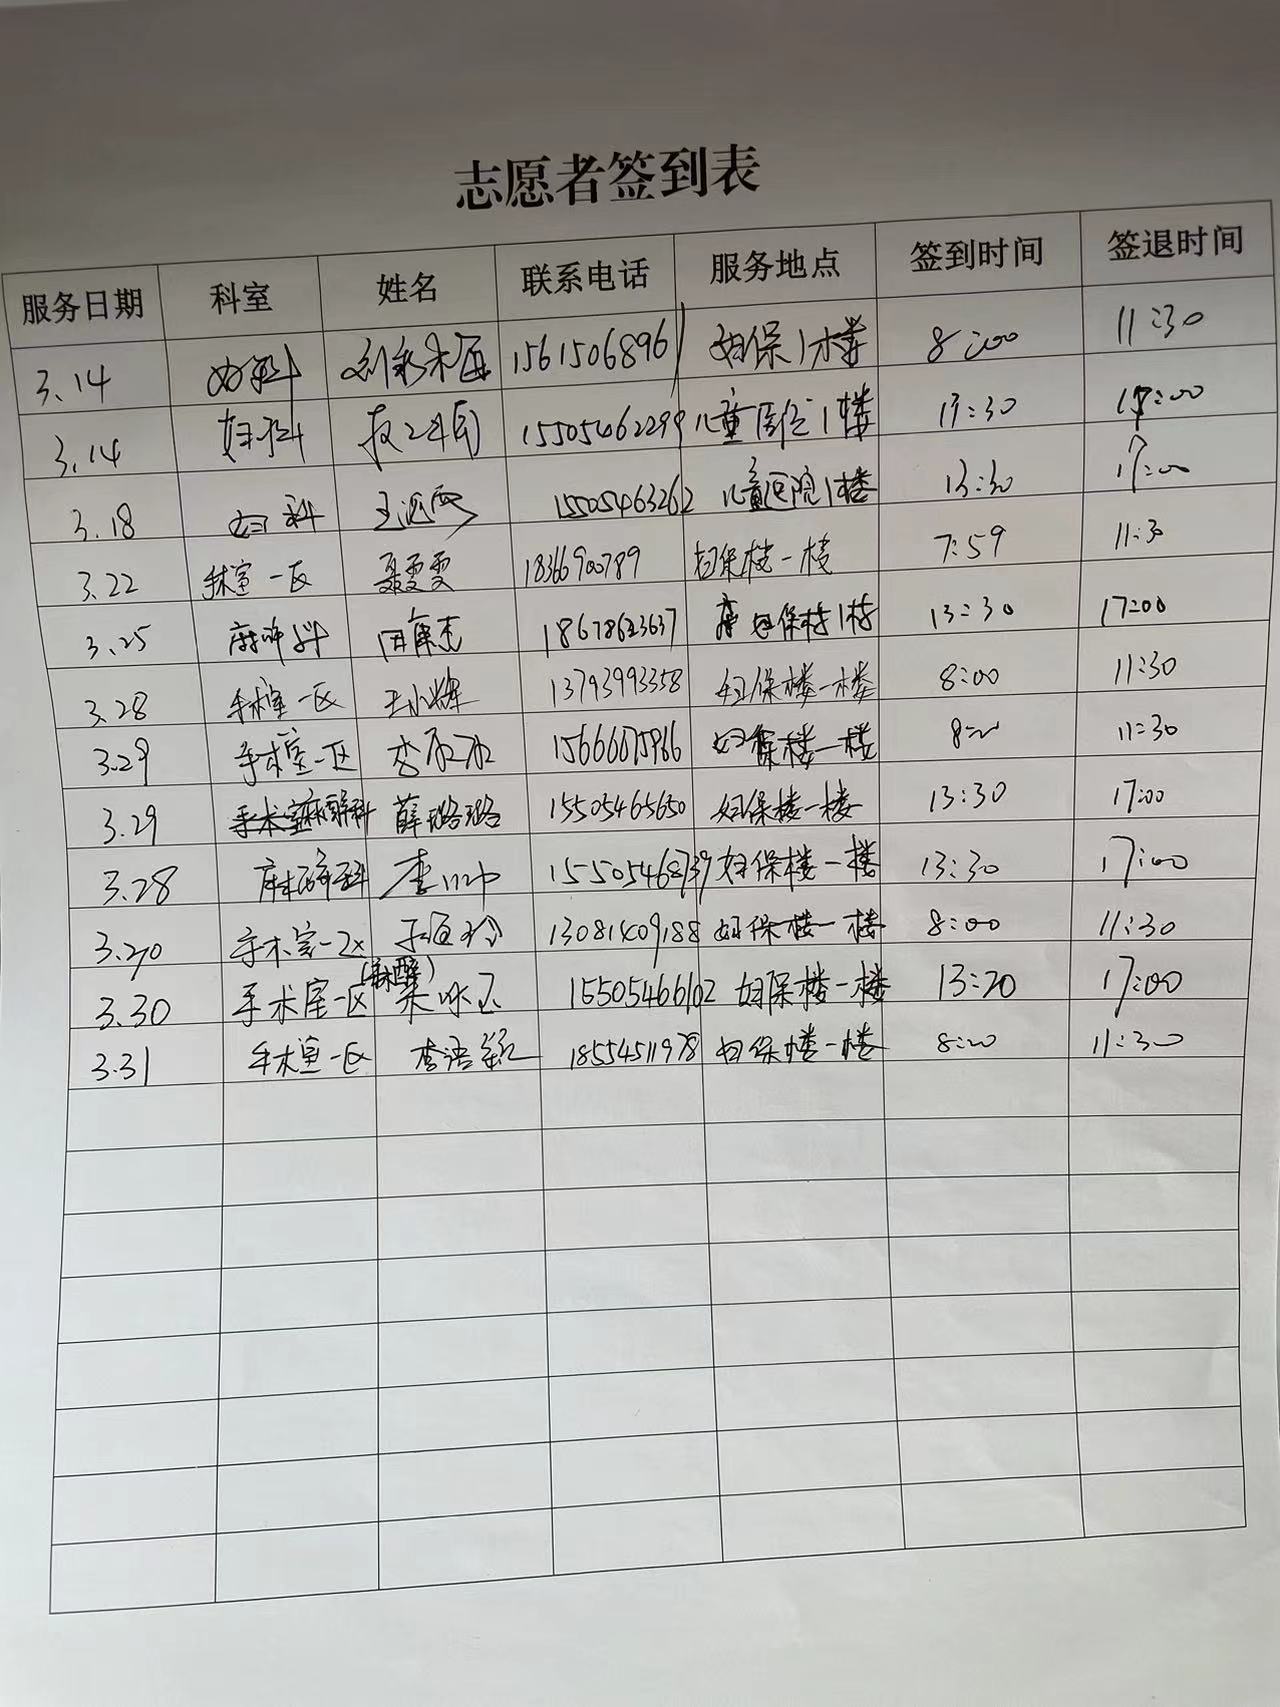 志愿者签到表
服务日期 科室 姓名 联系电话 服务地点 签到时间 签退时间
3.14 妇科 15615068961 妇保1楼 8:00 11:30
3.14 妇科 15505462299 儿童医院1楼 13:30 17:00
3.18 妇科 15505463262 儿童医院1楼 13:30 17:00
3.22 手术室一区 聂雯雯 18366900789 妇保楼一楼 7:59 11:30
3.25 麻醉科 田康杰 18678623637 妇保楼1楼 13:30 17:00
3.28 手术室一区 王小辉 13793993358 妇保楼一楼 8:00 11:30
3.29 手术室一区 李 妇保楼一楼 8:00 11:30
3.29 麻醉科 薛璐璐 15505465650 妇保楼一楼 13:30 17:00
3.28 麻醉科 李 15505468739 妇保楼一楼 13:30 17:00
3.20 手术室一区 13081409188 妇保楼一楼 8:00 11:30
3.30 手术室一区 (麻醉) 15505466102 妇保楼一楼 13:20 17:00
3.31 手术室一区 李语 18554511978 妇保楼一楼 8:20 11:30